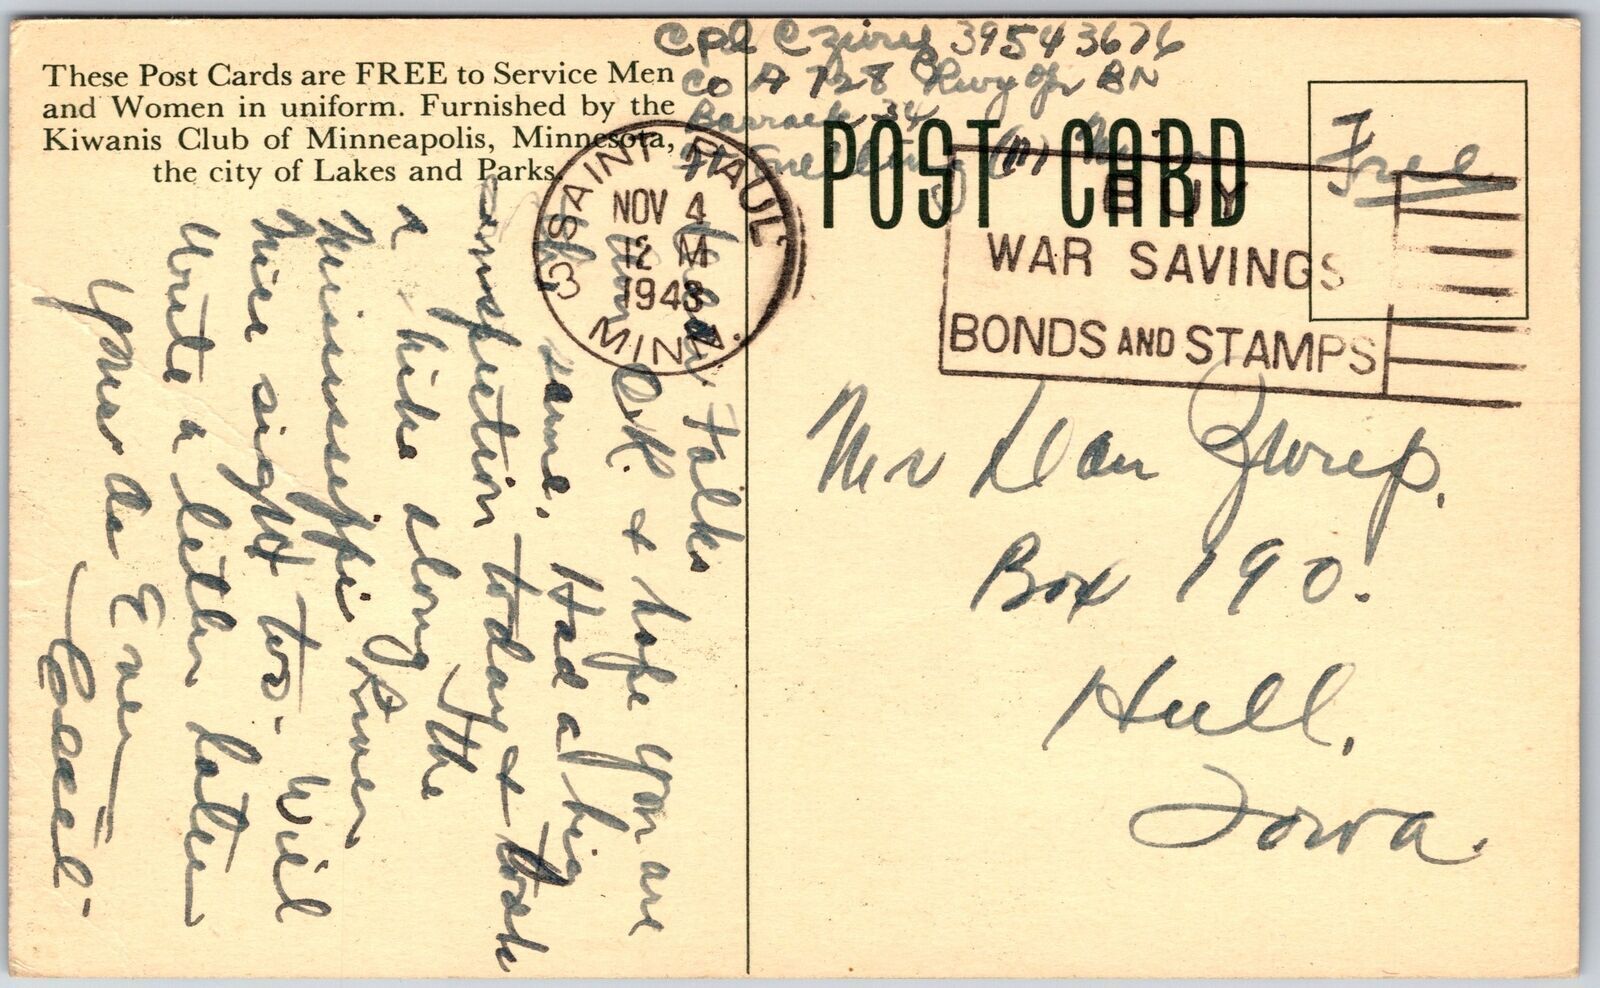 These Post Cards are FREE to Service Men
and Women in uniform. Furnished by the
Kiwanis Club of Minneapolis, Minnesota,
the city of Lakes and Parks.
Cpl C Zwrep 39543676
Co A 728 Rwy Opr BN
Barrack 34
Ft Snelling (11) Minn
POST CARD
Free
SAINT PAUL
NOV 4
12 M
1943
MINN.
3
BUY
WAR SAVINGS
BONDS AND STAMPS
Dear Folks
Am O.K. & hope you are
the same. Had a big
inspection today & took
a hike along the
Mississippi River
Nice sight too. Will
Write a letter later
Your As Ever
Ceciel -
Mr Dan Zwrep.
Box 190.
Hull,
Iowa.